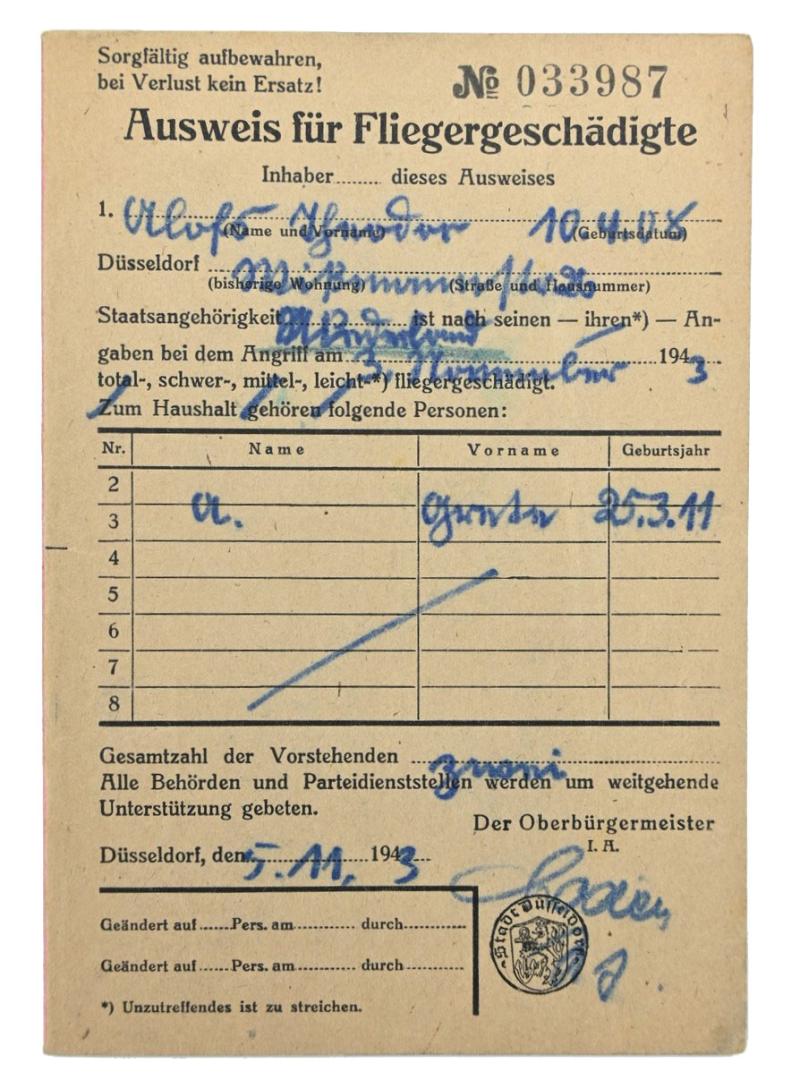 Sorgfältig aufbewahren,
bei Verlust kein Ersatz!
№ 033987
Ausweis für Fliegergeschädigte
Inhaber........ dieses Ausweises
1. Alofs Theodor 10.4.
(Name und Vorname) (Geburtsdatum)
Düsseldorf
(bisherige Wohnung) (Straße und Hausnummer)
Staatsangehörigkeit ist nach seinen — ihren*) — An-
gaben bei dem Angriff am 3. November 1943
total-, schwer-, mittel-, leicht-*) fliegergeschädigt.
Zum Haushalt gehören folgende Personen:
Nr. Name Vorname Geburtsjahr
2
3 A. Grete 25.3.11
4
5
6
7
8
Gesamtzahl der Vorstehenden zwei
Alle Behörden und Parteidienststellen werden um weitgehende
Unterstützung gebeten.
Der Oberbürgermeister
I. A.
Düsseldorf, den 5.11. 1943
Stadt Düsseldorf
Geändert auf ...... Pers. am ............ durch ............
Geändert auf ...... Pers. am ............ durch ............
*) Unzutreffendes ist zu streichen.